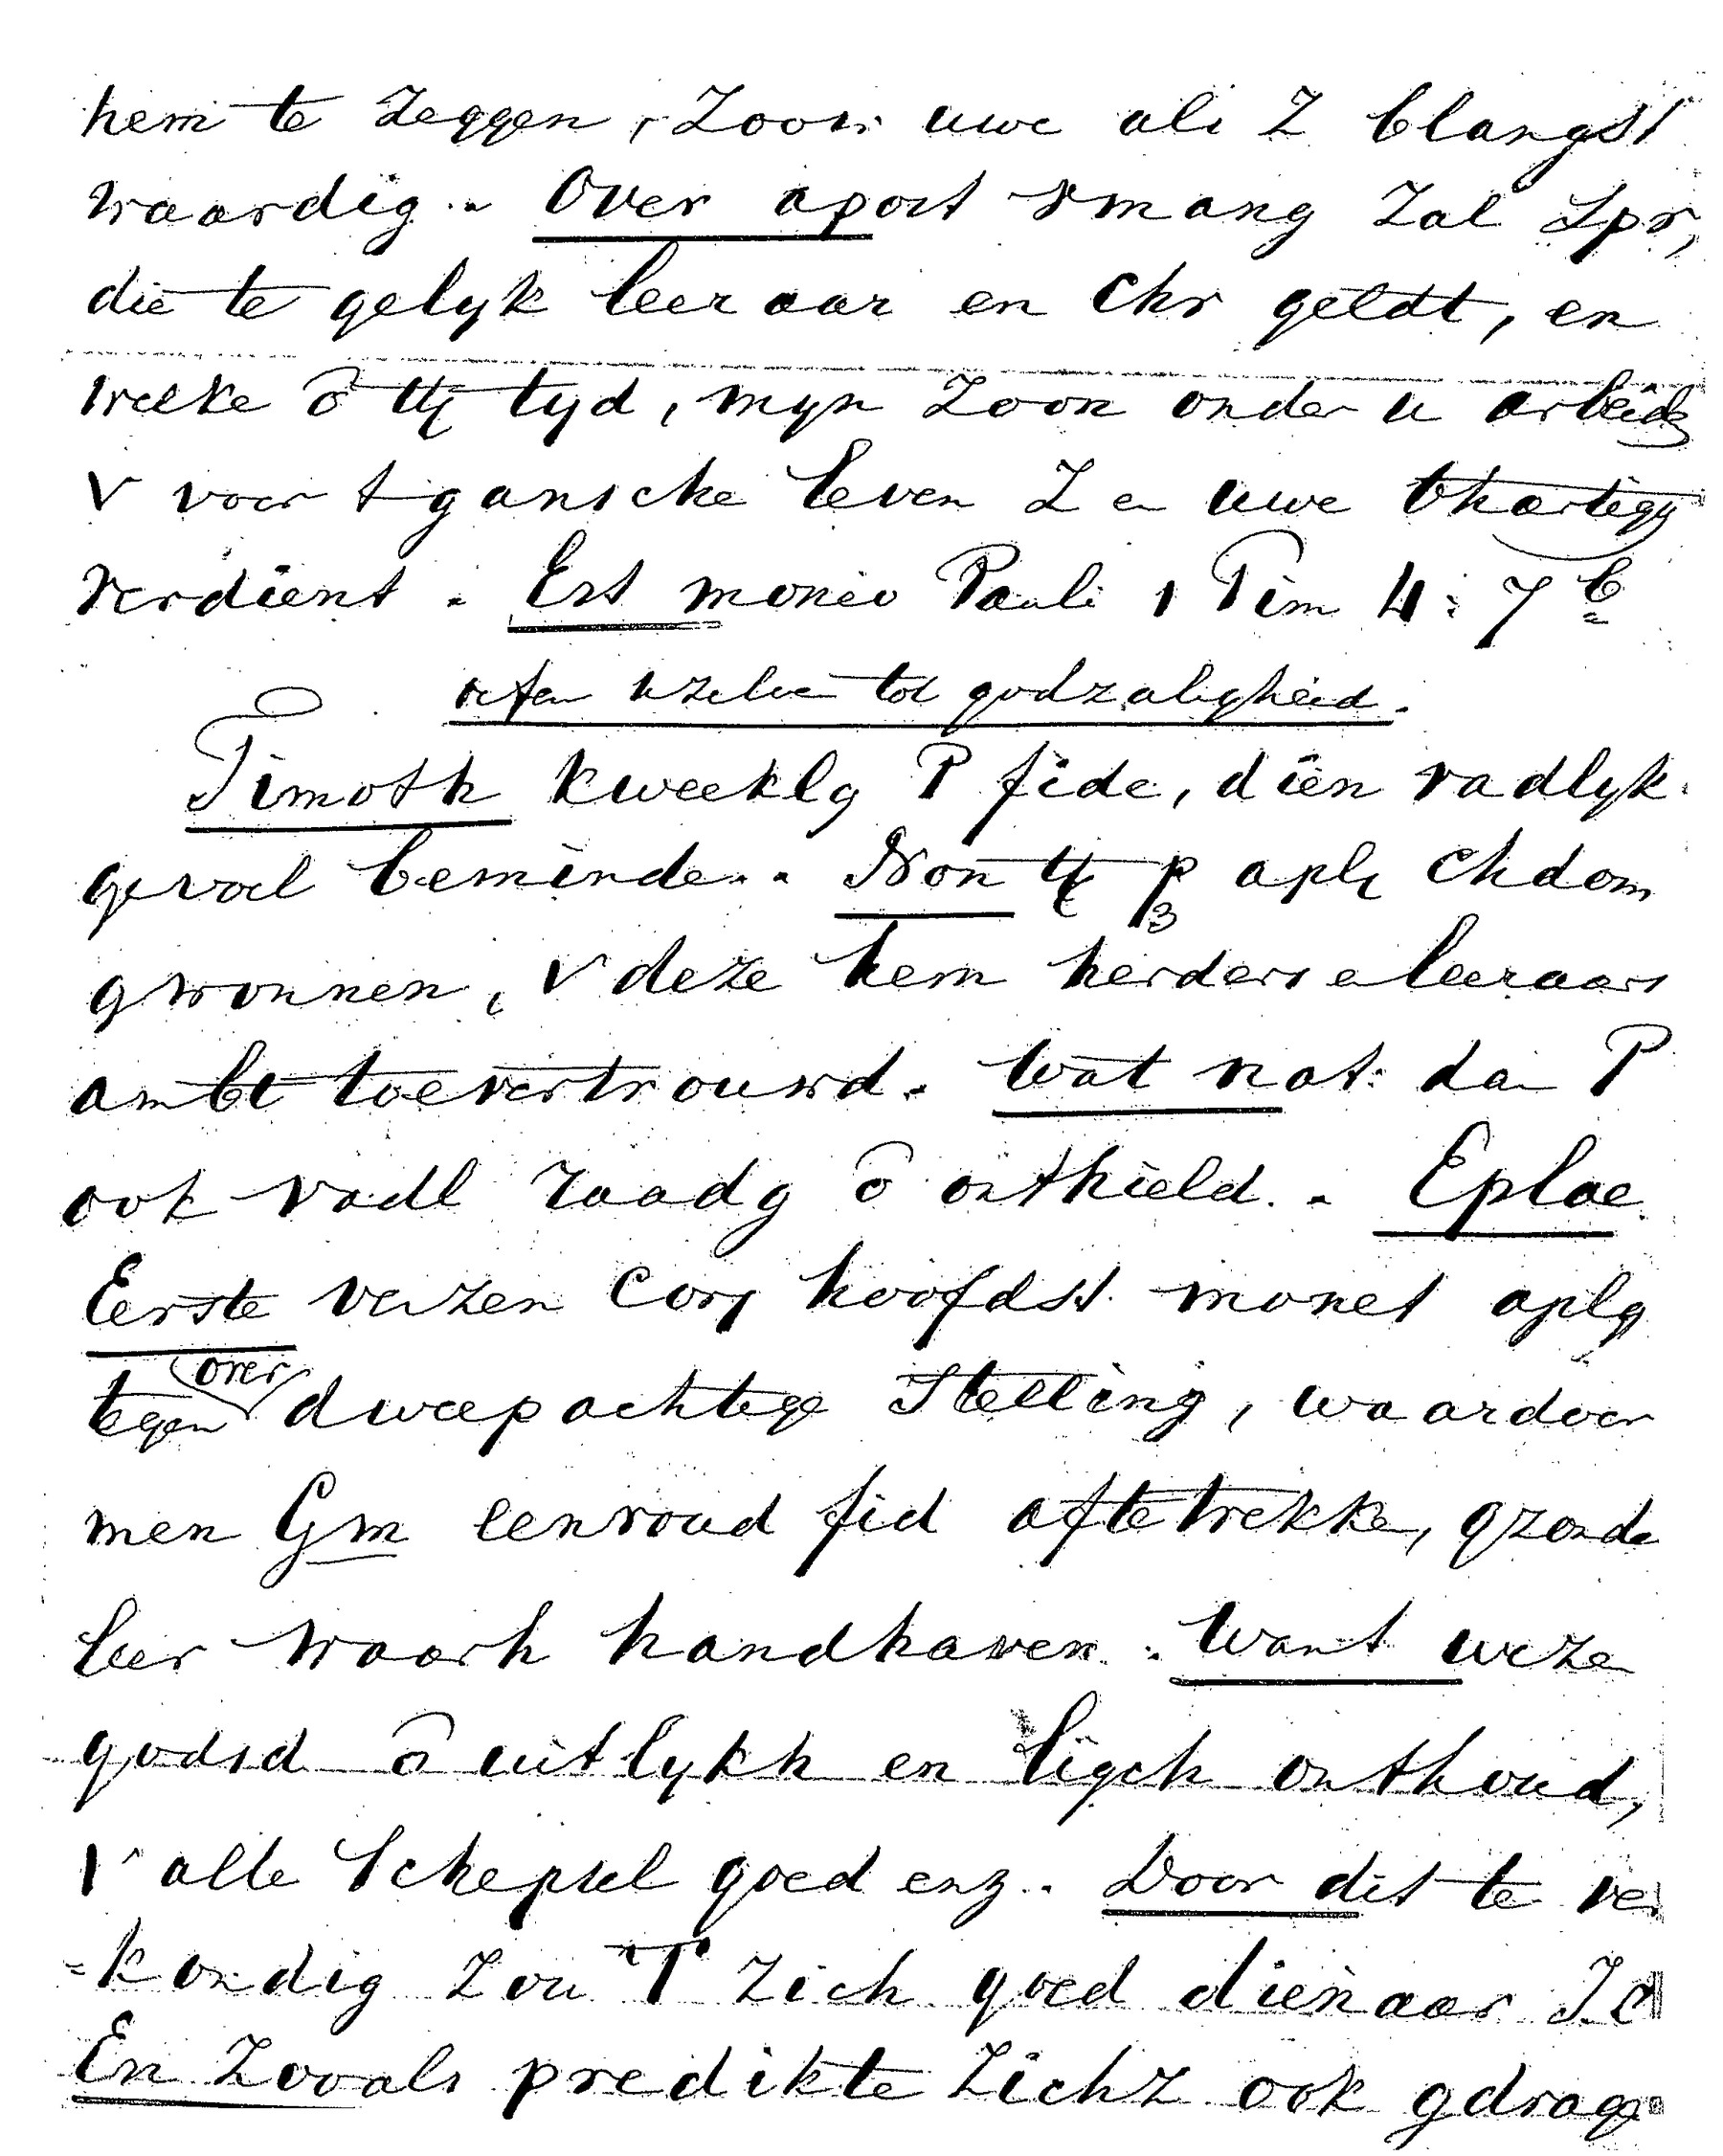 hem te zeggen, Zoon uwe als Z blangst
waardig. Over apost vmang zal spr,
die te gelyk leeraar en Chr geldt, en
welke ô tyd, myn Zoon onder u arbeid
V voor t gansche leven Z en uwe thartigg
verdient. Est monio Pauli 1 Tim 4:7 b
oefen uzelve tot godzaligheid.
Timoth kweeklg P fide, dien vadlyk
gevoel beminde. Non p apl Chdom
gwonnen, V deze hem herders e leeraars
ambt toevertrouwd. Wat nat: dan P
ook vadl raadg ô onthield. Eplae
Eerste verzen Corg hoofdst monet aplg
tegen over dweepachtige Stelling, waardoor
men Gm eenvoud fid aftetrekke, gzonde
leer waarh handhaven. Want weze
godsd ô uitlykh en ligch onthoud,
V alle Schepsel goed enz. Door dit te ver
=kondig zou T zich goed dienaar J.C
En Zooals predikte zich Z ook gdrage